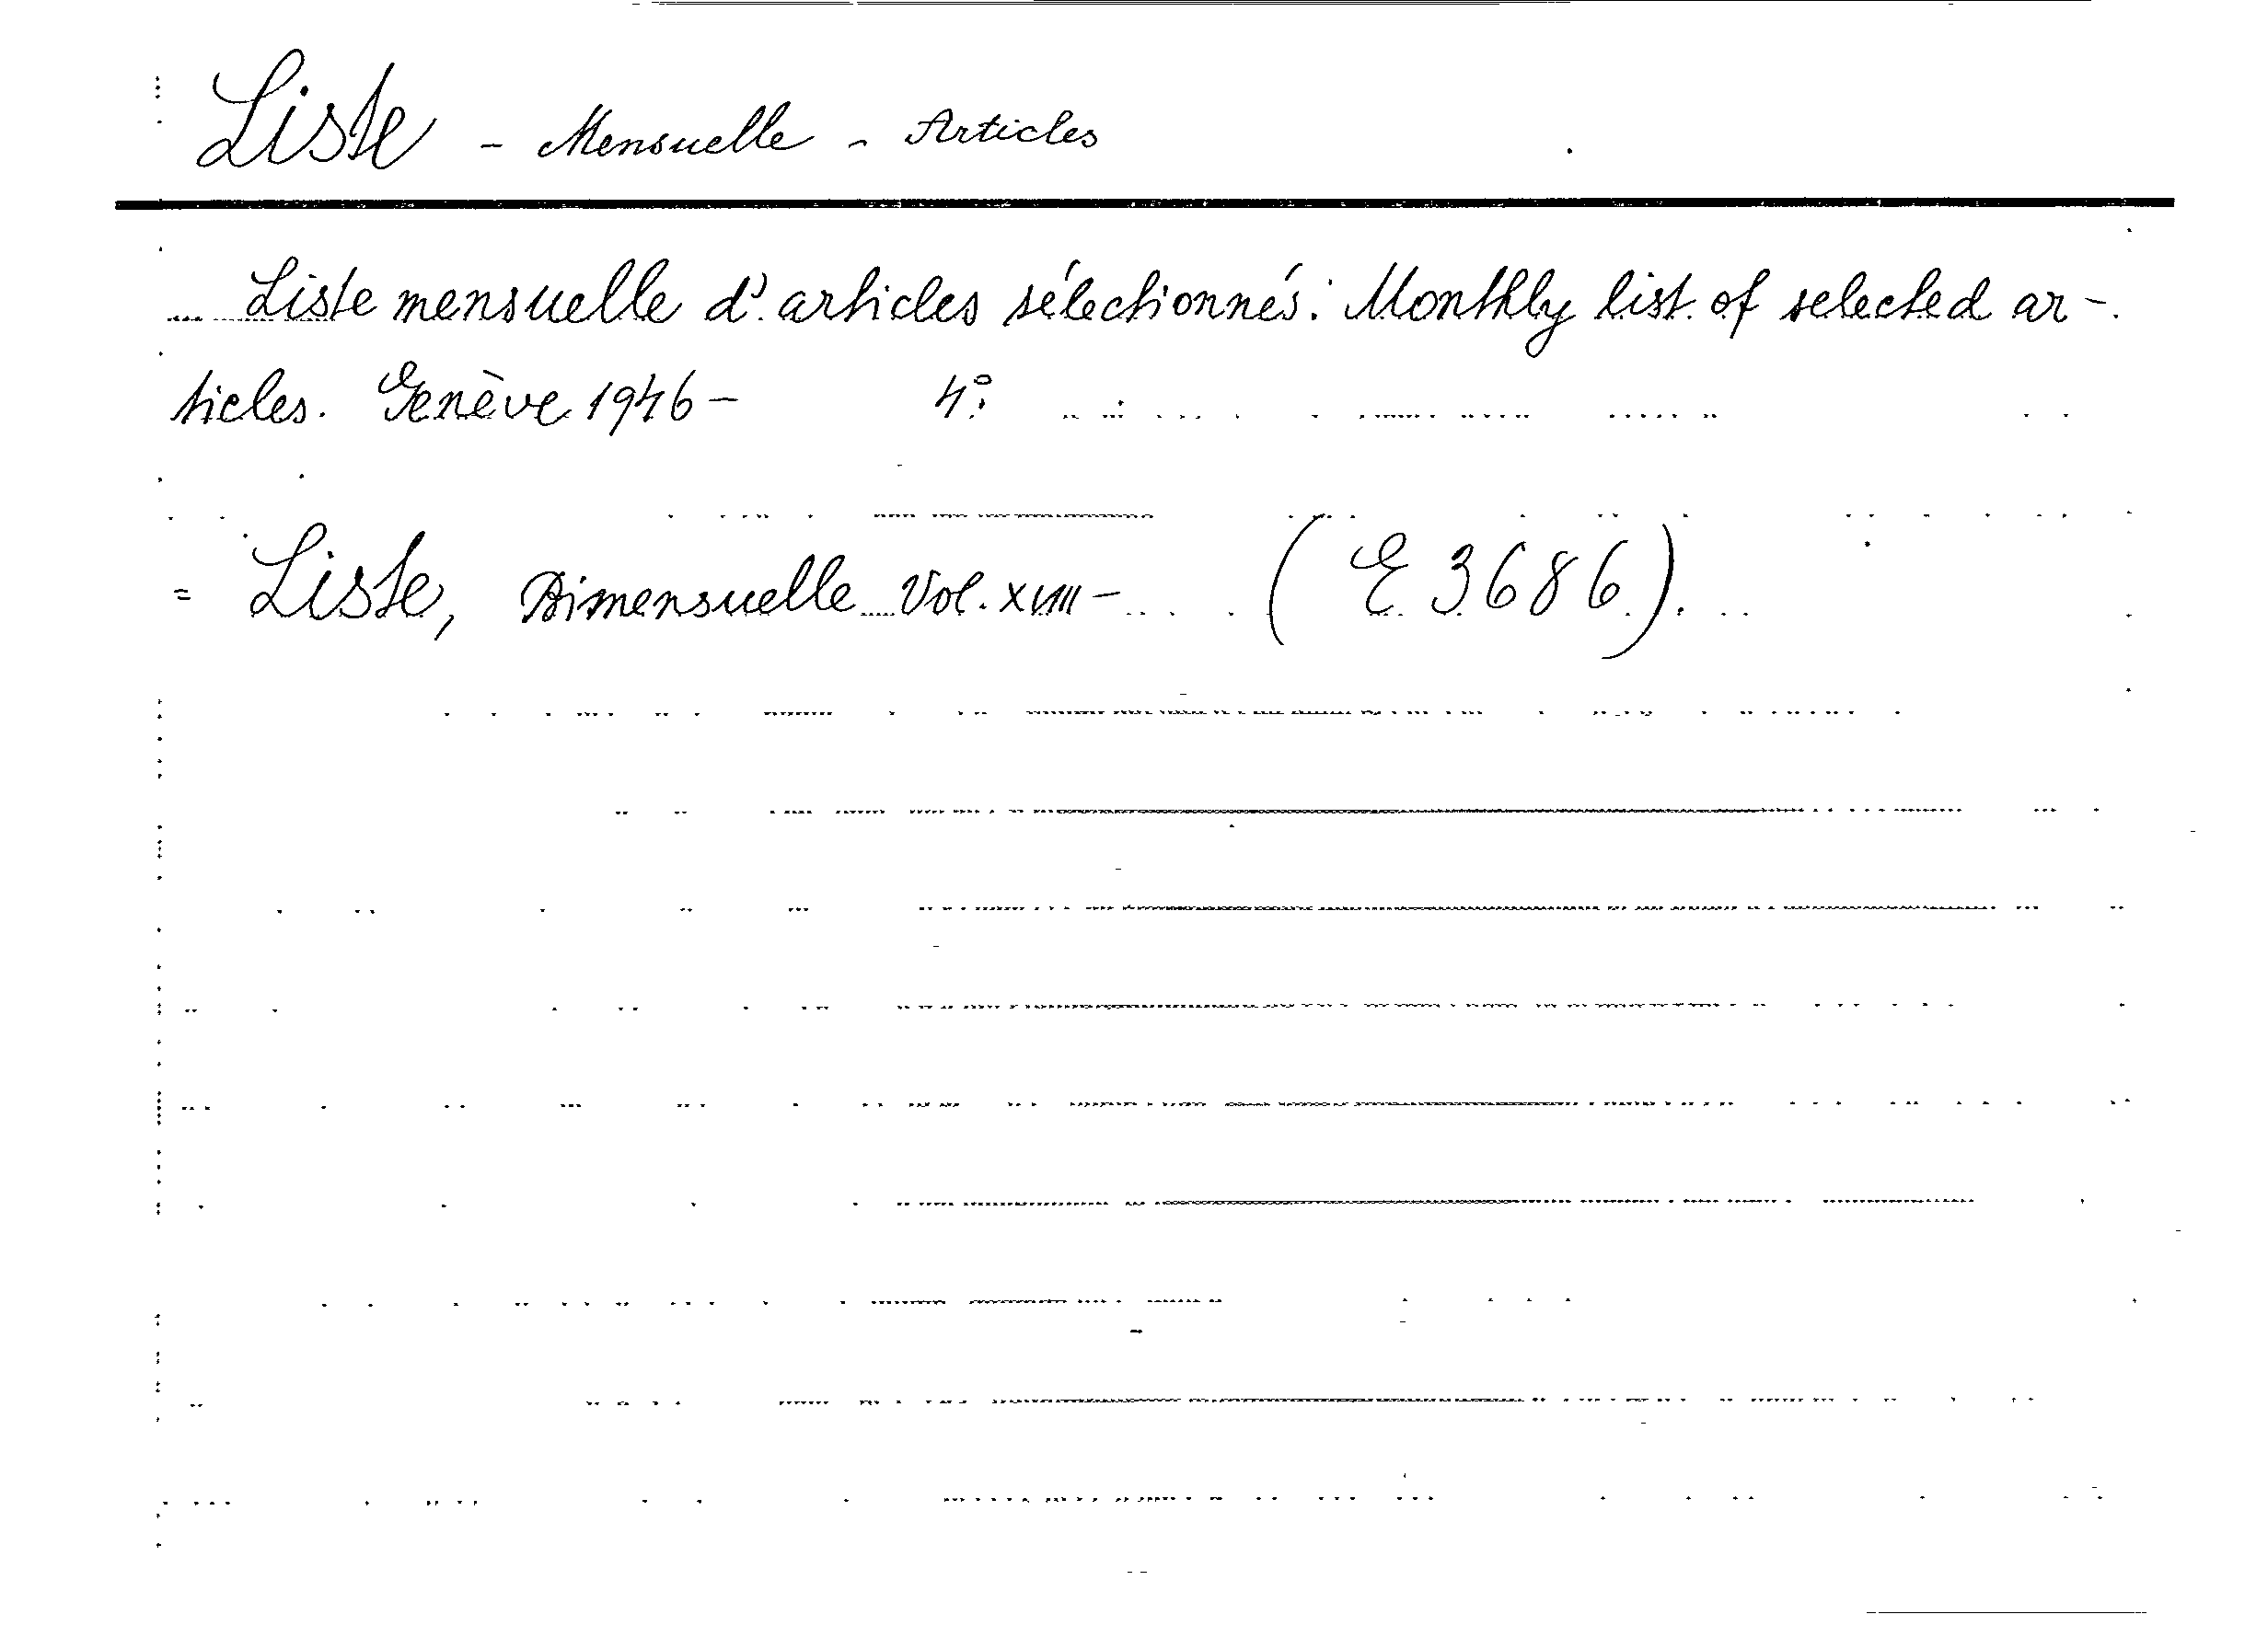 Liste - Mensuelle - Articles
Liste mensuelle d'articles sélectionnés: Monthly list of selected ar-
ticles. Genève 1946- 4°
= Liste, Bimensuelle Vol. XVIII- (E 3686).